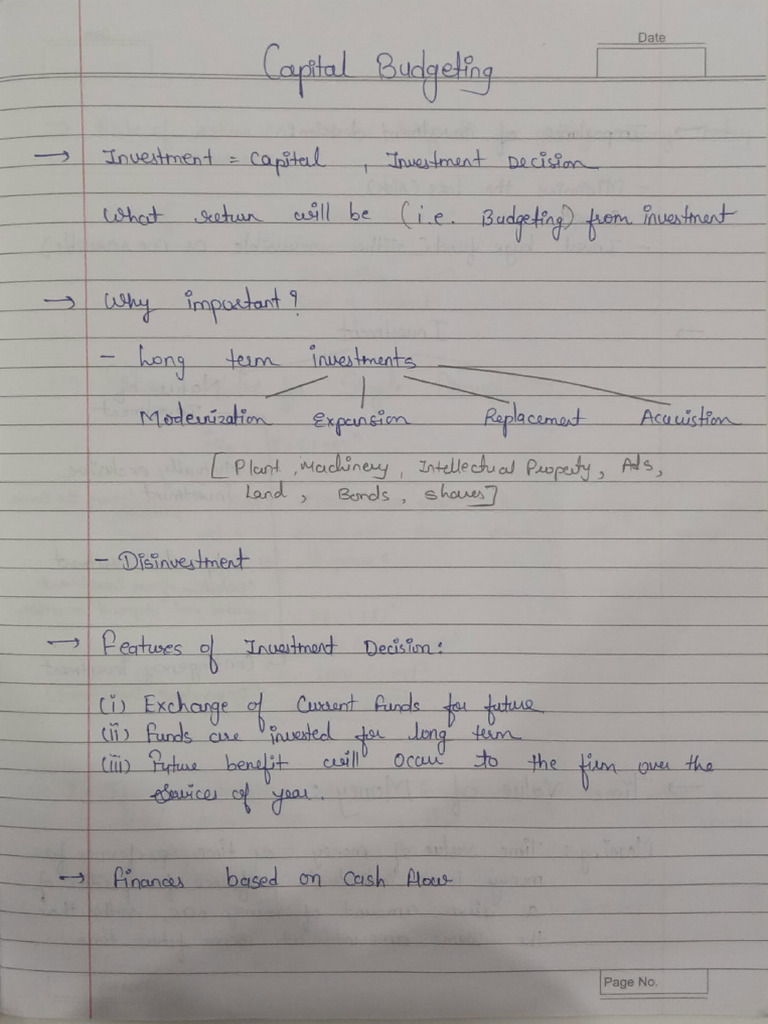 Date
Capital Budgeting
→ Investment = Capital , Investment Decision
What return will be (i.e. Budgeting) from investment
→ Why important?
- Long term investments
Modernization Expansion Replacement Acquistion
[Plant, Machinery, Intellectual Property, Ads,
Land, Bonds, Shares]
- Disinvestment
→ Features of Investment Decision:
(i) Exchange of Current funds for future
(ii) Funds are invested for long term
(iii) Future benefit will occur to the firm over the
of year.
→ Finances based on Cash flow
Page No.